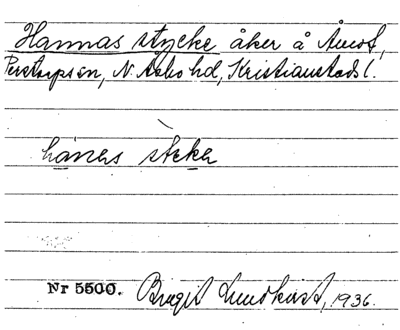 Hannas stycke åker å Åmot,
Perstorps sn, N. Åsbo hd, Kristianstads l.
hánas steka
Nr 5500. Birgit Lundkvist, 1936.